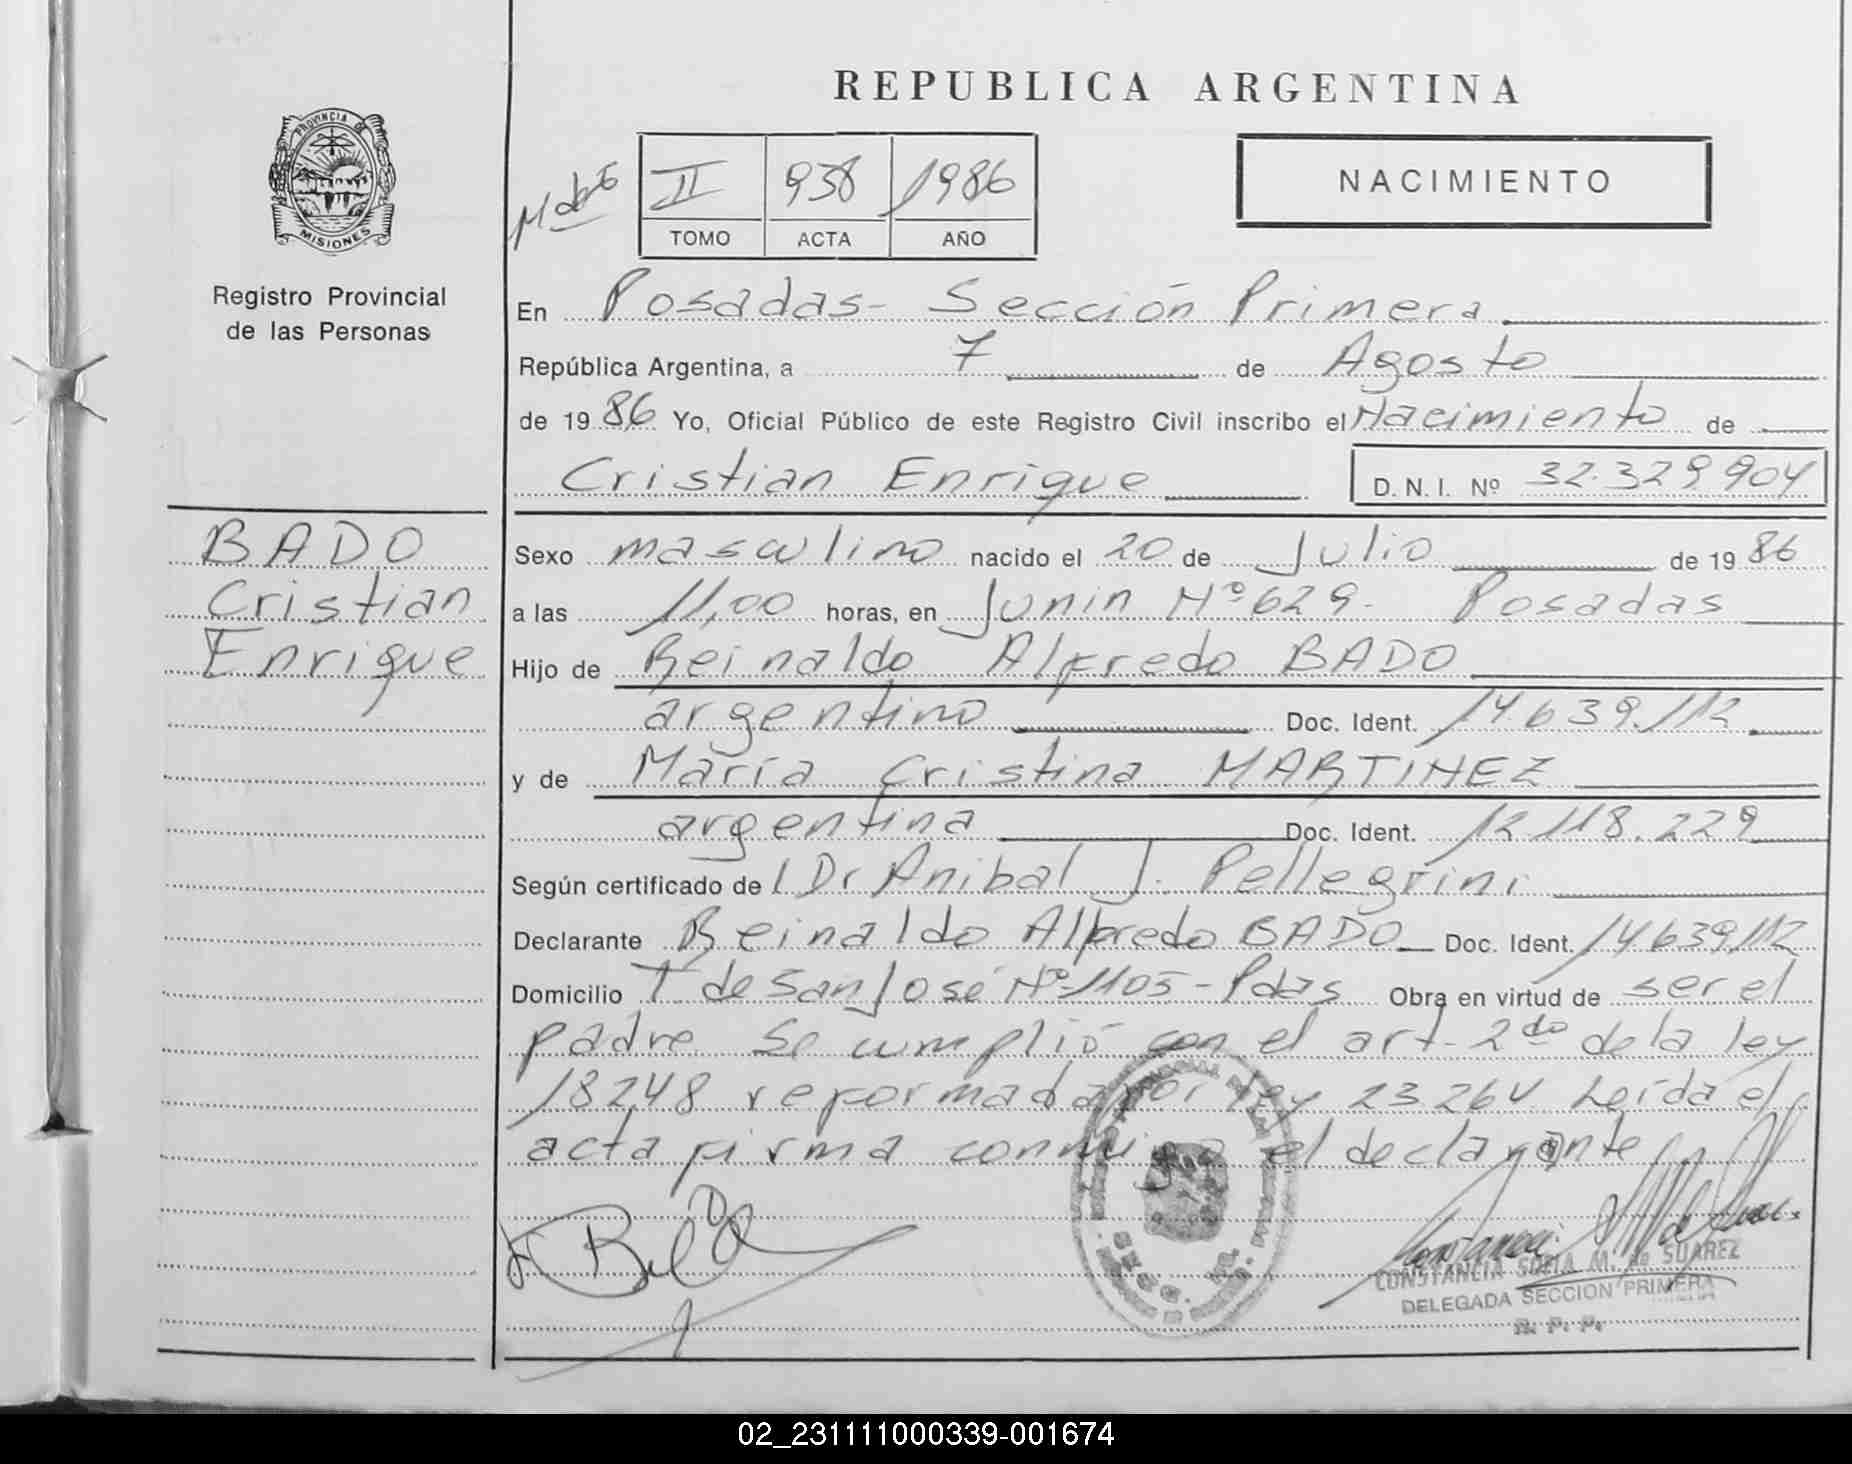 REPUBLICA ARGENTINA
PROVINCIA DE
MISIONES
Registro Provincial
de las Personas
II 938 1986
TOMO ACTA AÑO
NACIMIENTO
En Posadas- Sección Primera
República Argentina, a 7 de Agosto
de 1986 Yo, Oficial Público de este Registro Civil inscribo el Nacimiento de
Cristian Enrique D.N.I. Nº 32.329904
BADO
Cristian
Enrique
Sexo masculino nacido el 20 de Julio de 1986
a las 11,00 horas, en Junin Nº 629- Posadas
Hijo de Reinaldo Alfredo BADO
argentino Doc. Ident. 14.639.112
y de María Cristina MARTINEZ
argentina Doc. Ident. 12.118.229
Según certificado de l Dr Anibal J. Pellegrini
Declarante Reinaldo Alfredo BADO Doc. Ident. 14.639.112
Domicilio T de San José Nº 1105 - Pdas Obra en virtud de ser el
padre. Se cumplió con el art. 2do de la ley
18248 reformada por ley 23264 Leída el
acta firma conmigo el declarante
CONSTANCIA SOFIA M. de SUAREZ
DELEGADA SECCION PRIMERA
R. P. P.
02_231111000339-001674